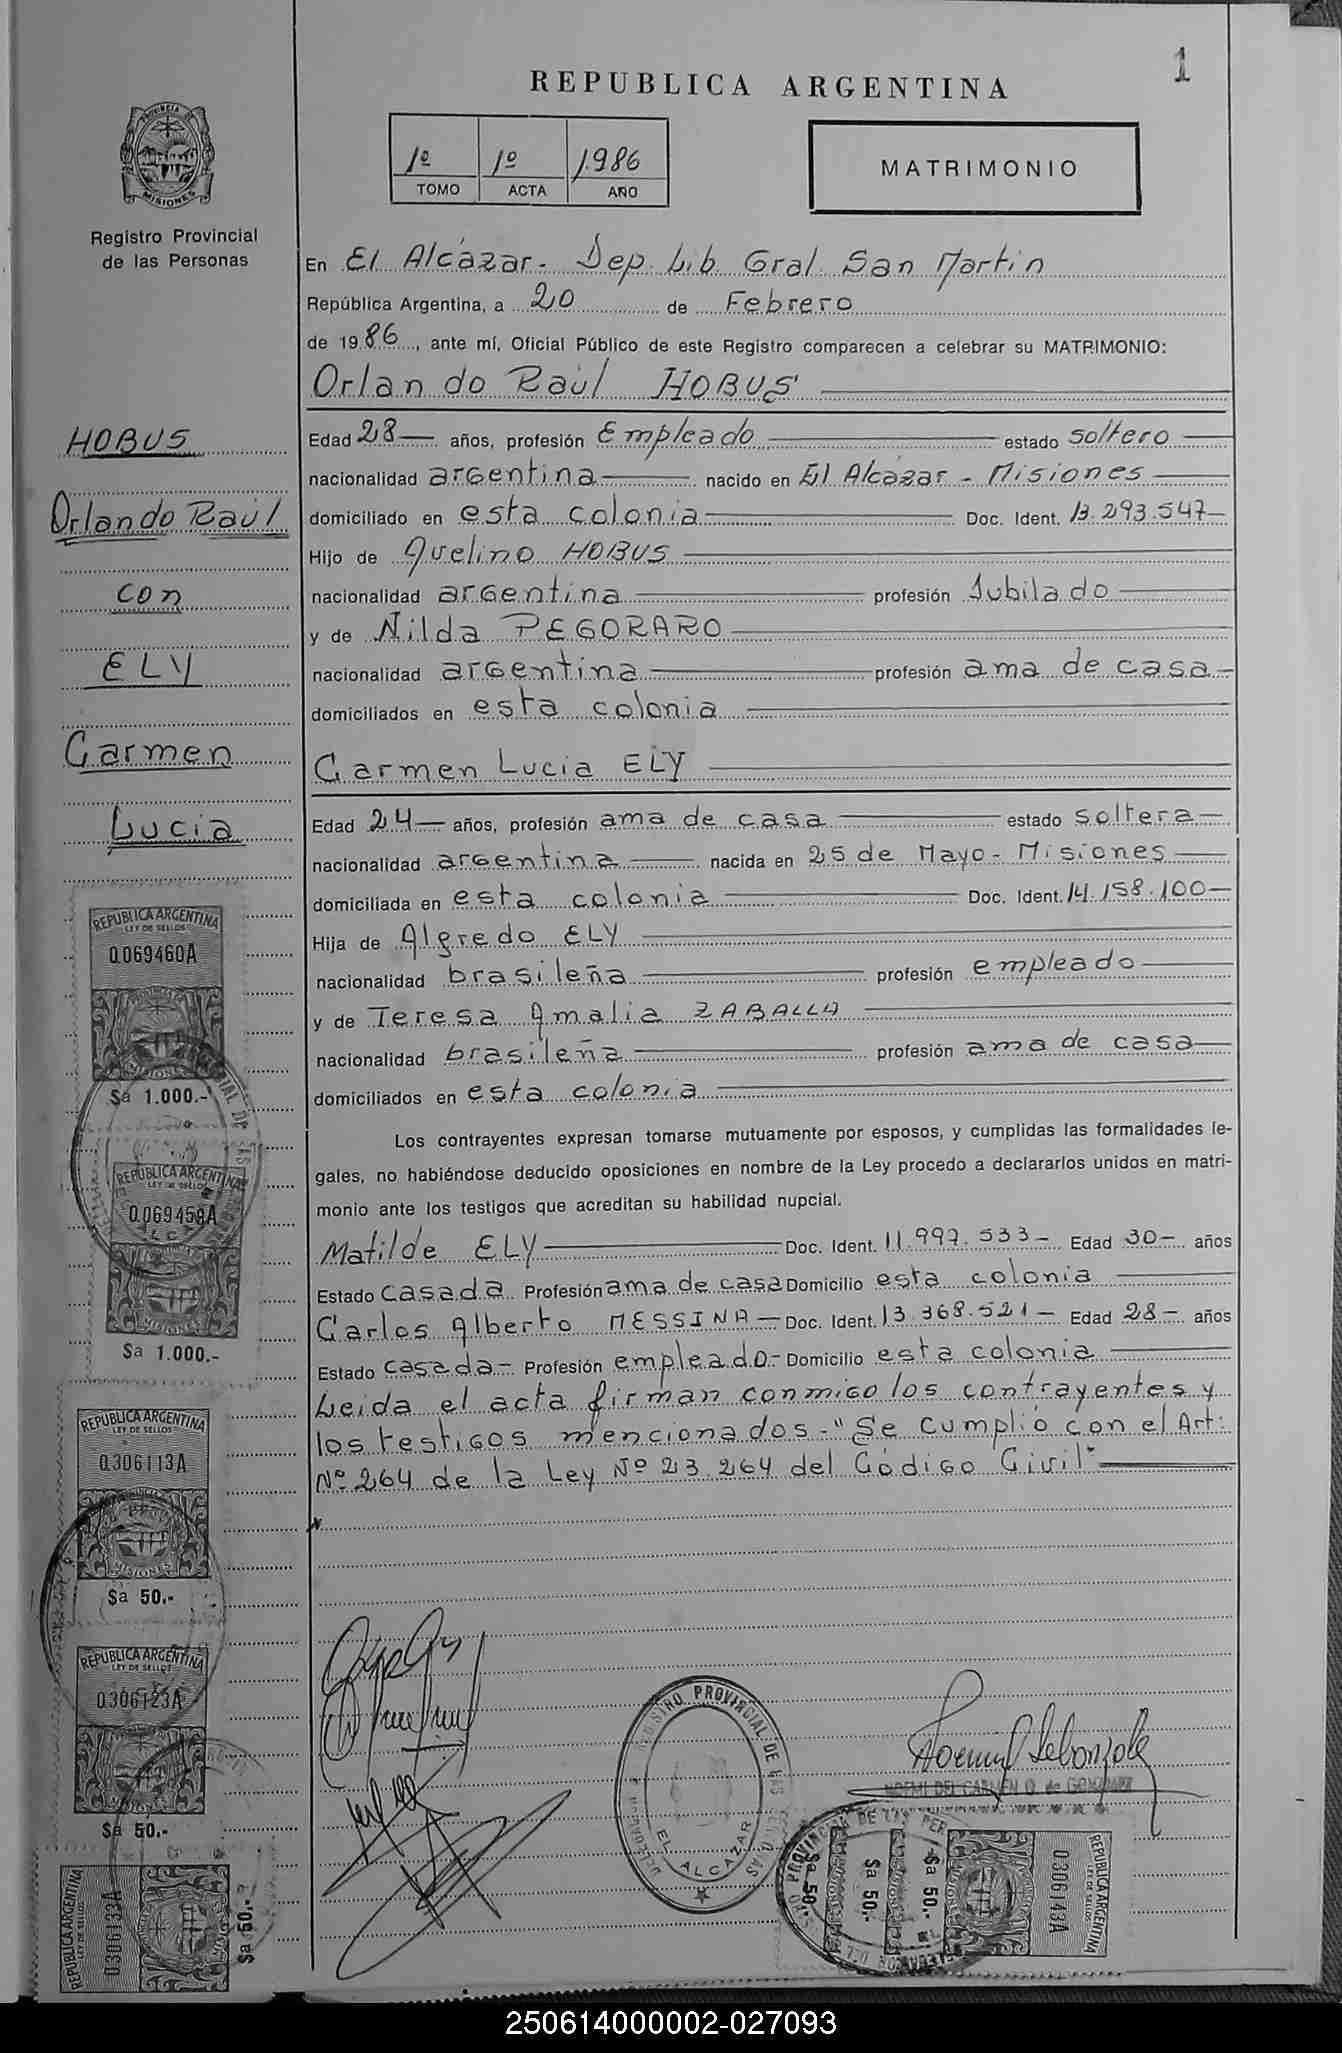 1
REPUBLICA ARGENTINA
PROVINCIA DE MISIONES
1º 1º 1.986
TOMO ACTA AÑO
MATRIMONIO
Registro Provincial
de las Personas
En El Alcázar - Dep. Lib. Gral. San Martin
República Argentina, a 20 de Febrero
de 1986, ante mí, Oficial Público de este Registro comparecen a celebrar su MATRIMONIO:
Orlando Raúl HOBUS
HOBUS
Orlando Raúl
con
ELY
Carmen
Lucia
Edad 28 años, profesión Empleado estado soltero
nacionalidad argentina nacido en El Alcázar - Misiones
domiciliado en esta colonia Doc. Ident. 13.293.547
Hijo de Avelino HOBUS
nacionalidad argentina profesión Jubilado
y de Nilda PEGORARO
nacionalidad argentina profesión ama de casa
domiciliados en esta colonia
Carmen Lucia ELY
Edad 24 años, profesión ama de casa estado soltera
nacionalidad argentina nacida en 25 de Mayo - Misiones
domiciliada en esta colonia Doc. Ident. 14.158.100
Hija de Algredo ELY
nacionalidad brasileña profesión empleado
y de Teresa Amalia ZABALLA
nacionalidad brasileña profesión ama de casa
domiciliados en esta colonia
Los contrayentes expresan tomarse mutuamente por esposos, y cumplidas las formalidades le-
gales, no habiéndose deducido oposiciones en nombre de la Ley procedo a declararlos unidos en matri-
monio ante los testigos que acreditan su habilidad nupcial.
Matilde ELY Doc. Ident. 11.997.533 - Edad 30 - años
Estado casada Profesión ama de casa Domicilio esta colonia
Carlos Alberto MESSINA - Doc. Ident. 13.368.521 - Edad 28 - años
Estado casada - Profesión empleado - Domicilio esta colonia
Leida el acta firman conmigo los contrayentes y
los testigos mencionados - "Se cumplió con el Art:
Nº 264 de la Ley Nº 23.264 del Código Civil"
REPUBLICA ARGENTINA
LEY DE SELLOS
0.069460A
MISIONES
$a 1.000.-
REPUBLICA ARGENTINA
LEY DE SELLOS
0.069459A
MISIONES
$a 1.000.-
REPUBLICA ARGENTINA
LEY DE SELLOS
0.306113A
MISIONES
$a 50.-
REPUBLICA ARGENTINA
LEY DE SELLOS
0.306123A
MISIONES
$a 50.-
REPUBLICA ARGENTINA
LEY DE SELLOS
0.306133A
$a 50.-
REGISTRO PROVINCIAL DE LAS
EL ALCAZAR
NOEMI DEL CARMEN
$a 50.-
$a 50.-
$a 50.-
0.306143A
REPUBLICA ARGENTINA
LEY DE SELLOS
250614000002-027093